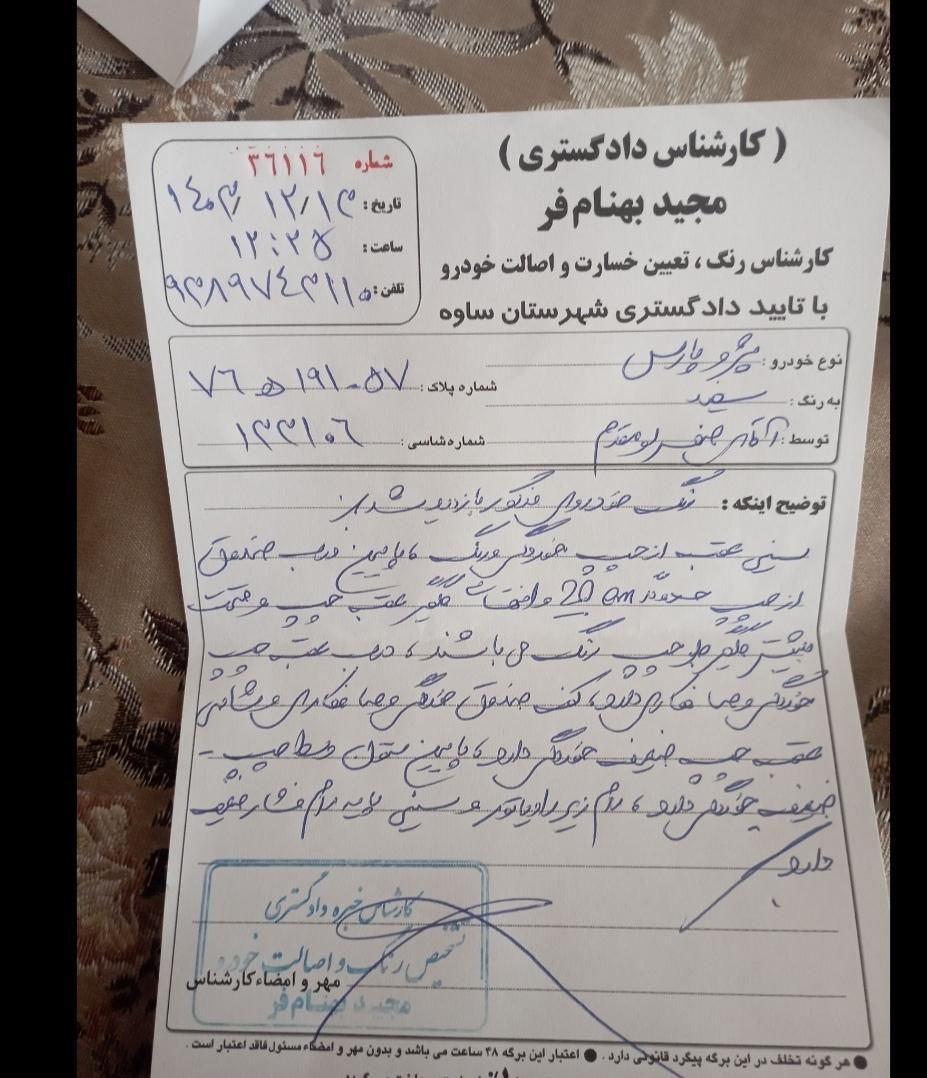 ( کارشناس دادگستری )
مجید بهنام‌فر
کارشناس رنگ ، تعیین خسارت و اصالت خودرو
با تایید دادگستری شهرستان ساوه
شماره ۳۶۱۱۶
تاریخ : ۱۴۰۳/ ۱۲/ ۱۳
ساعت : ۱۲:۲۵
تلفن :
نوع خودرو : پژو پارس
شماره پلاک : ۵۷ - ۱۹۱ ه ۷۶
به رنگ : سفید
توسط : آقای
شماره شاسی : ۱۳۳۱۰۶
توضیح اینکه : رنگ خودروی مذکور بازدید شد
سینی عقب از چپ خوردگی و رنگ ، پایین درب صندوق
از چپ حدوداً 20 cm و گلگیر عقب چپ و قسمت
بیشتر گلگیر جلو چپ رنگ می باشند ، درب عقب چپ
خوردگی و صافکاری دارد ، کف صندوق خوردگی و صافکاری و شاسی
عقب چپ ضعیف خوردگی دارد ، پایین ستون وسط چپ -
ضعیف خوردگی دارد ، رام زیر رادیاتور و سینی پایه رام فشار ضعیف
دارد
کارشناس خبره دادگستری
تشخیص رنگ و اصالت خودرو
مجید بهنام فر
مهر و امضاء کارشناس
● هر گونه تخلف در این برگه پیگرد قانونی دارد . ● اعتبار این برگه ۴۸ ساعت می باشد و بدون مهر و امضاء مسئول فاقد اعتبار است .